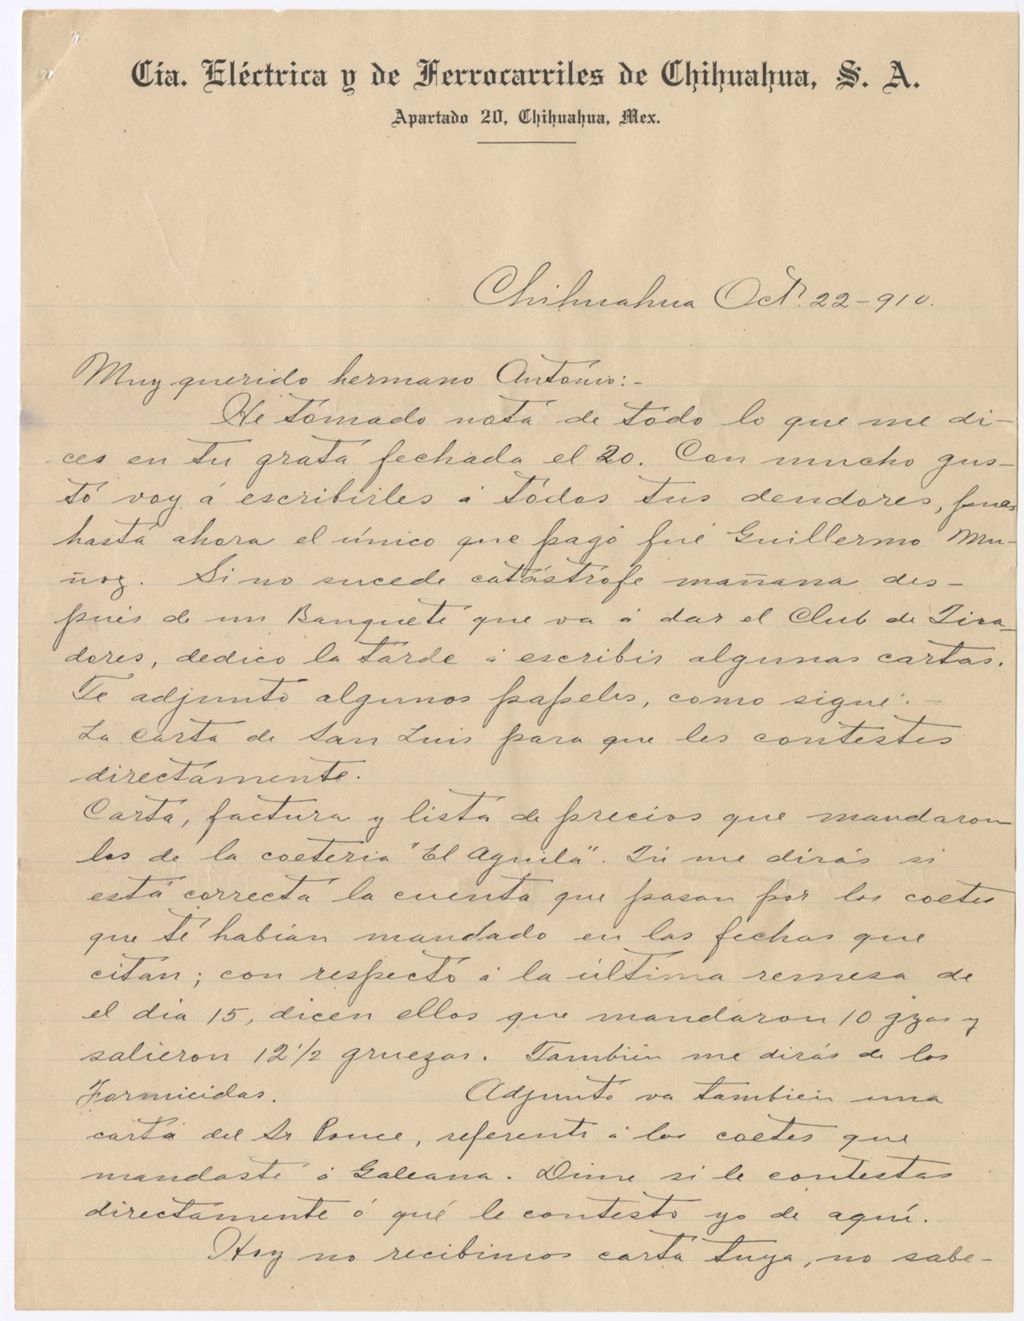 Cía. Eléctrica y de Ferrocarriles de Chihuahua, S. A.
Apartado 20, Chihuahua, Mex.
Chihuahua Oct. 22-910.
Muy querido hermano Antonio:-
He tomado nota de todo lo que me di-
ces en tu grata fechada el 20. Con mucho gus-
to voy á escribirles á todos tus deudores, pues
hasta ahora el único que pagó fué Guillermo Mu-
ñoz. Si no sucede catástrofe mañana des-
pués de un Banquete que va á dar el Club de Tira-
dores, dedico la tarde á escribir algunas cartas.
Te adjunto algunos papeles, como sigue:-
La carta de San Luis para que les contestes
directamente.
Carta, factura y lista de precios que mandaron
los de la coeteria "El Aguila". Tú me dirás si
está correcta la cuenta que pasan por los coetes
que te habían mandado en las fechas que
citan; con respecto á la última remesa de
el dia 15, dicen ellos que mandaron 10 gzas y
salieron 12 1/2 gruezas. También me dirás de los
Formicidas. Adjunto va también una
carta del Sr Ponce, referente á los coetes que
mandaste á Galeana. Dime si le contestas
directamente ó qué le contesto yo de aquí.
Hoy no recibimos carta tuya, no sabe-